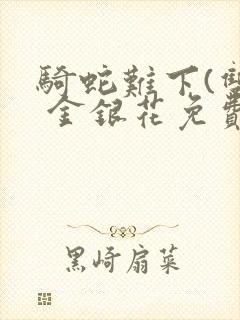 騎蛇難下(雙
金銀花免費
黑崎扇菜